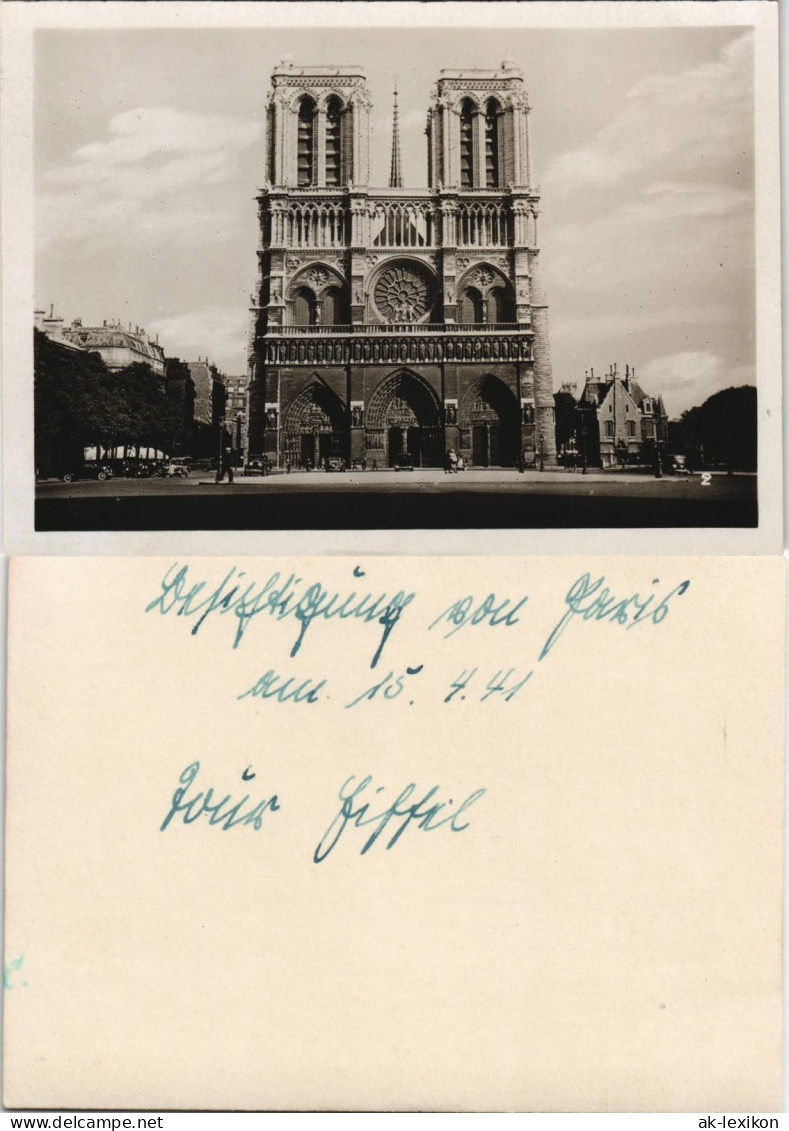 2
Besichtigung von Paris
am 15. 4. 41
Tour Eiffel
www.ansichtskarten-lexikon.de
ak-lexikon